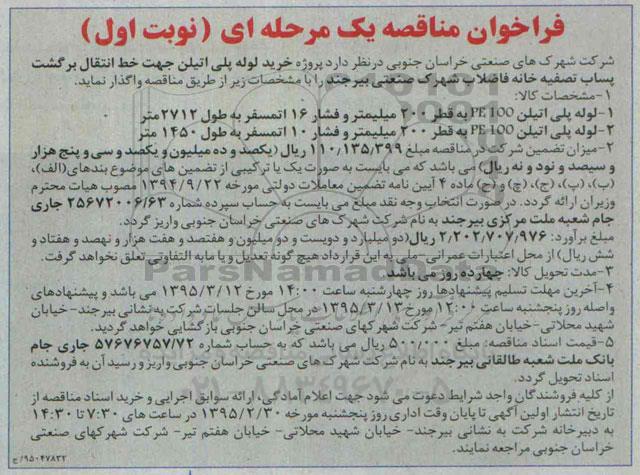 فراخوان مناقصه یک مرحله ای (نوبت اول)
شرکت شهرک های صنعتی خراسان جنوبی درنظر دارد پروژه خرید لوله پلی اتیلن جهت خط انتقال برگشت
پساب تصفیه خانه فاضلاب شهرک صنعتی بیرجند را با مشخصات زیر از طریق مناقصه واگذار نماید.
۱-مشخصات کالا:
۱-لوله پلی اتیلن PE100 به قطر ۲۰۰ میلیمتر و فشار ۱۶ اتمسفر به طول ۲۷۱۲متر
۲-لوله پلی اتیلن PE100 به قطر ۲۰۰ میلیمتر و فشار ۱۰ اتمسفر به طول ۱۴۵۰ متر
۲-میزان تضمین شرکت در مناقصه مبلغ ۱۱۰/۱۳۵/۳۹۹ ریال (یکصد و ده میلیون و یکصد و سی و پنج هزار
و سیصد و نود و نه ریال) می باشد که می بایست به صورت یک یا ترکیبی از تضمین های موضوع بندهای(الف)،
(ب)، (پ)، (ج)، (چ) و (ح) ماده ۴ آیین نامه تضمین معاملات دولتی مورخه ۱۳۹۴/۹/۲۲ مصوب هیات محترم
وزیران ارائه گردد. در صورت انتخاب وجه نقد مبلغ می بایست به حساب سپرده شماره ۲۵۶۷۲۰۰۶/۶۳ جاری
جام شعبه ملت مرکزی بیرجند به نام شرکت شهرک های صنعتی خراسان جنوبی واریز گردد.
مبلغ برآورد: ۲/۲۰۲/۷۰۷/۹۷۶ ریال(دو میلیارد و دویست و دو میلیون و هفتصد و هفت هزار و نهصد و هفتاد و
شش ریال) از محل اعتبارات عمرانی-ملی به این قرارداد هیچ گونه تعدیل و یا مابه التفاوتی تعلق نخواهد گرفت.
۳-مدت تحویل کالا: چهارده روز می باشد.
۴-آخرین مهلت تسلیم پیشنهادها روز چهارشنبه ساعت ۱۴:۰۰ مورخ ۱۳۹۵/۳/۱۲ می باشد و پیشنهادهای
واصله روز پنجشنبه ساعت ۱۲:۰۰ مورخ ۱۳۹۵/۳/۱۳ در محل سالن جلسات شرکت به نشانی بیرجند-خیابان
شهید محلاتی-خیابان هفتم تیر- شرکت شهرکهای صنعتی خراسان جنوبی بازگشایی خواهد گردید.
۵-قیمت اسناد مناقصه: مبلغ ۵۰۰/۰۰۰ ریال می باشد که به حساب شماره ۵۷۶۷۶۷۵۷/۷۲ جاری جام
بانک ملت شعبه طالقانی بیرجند به نام شرکت شهرک های صنعتی خراسان جنوبی واریز و رسید آن به فروشنده
اسناد تحویل گردد.
از کلیه فروشندگان واجد شرایط دعوت می شود جهت اعلام آمادگی، ارائه سوابق اجرایی و خرید اسناد مناقصه از
تاریخ انتشار اولین آگهی تا پایان وقت اداری روز پنجشنبه مورخه ۱۳۹۵/۲/۳۰ در ساعت های ۷:۳۰ تا ۱۴:۳۰
به دبیرخانه شرکت به نشانی بیرجند- خیابان شهید محلاتی- خیابان هفتم تیر- شرکت شهرکهای صنعتی
خراسان جنوبی مراجعه نمایند.
۹۵۰۴۷۸۳۲/ج
ParsNamad
۰۲۱-۸۸۳۴۹۶۷۰-۵